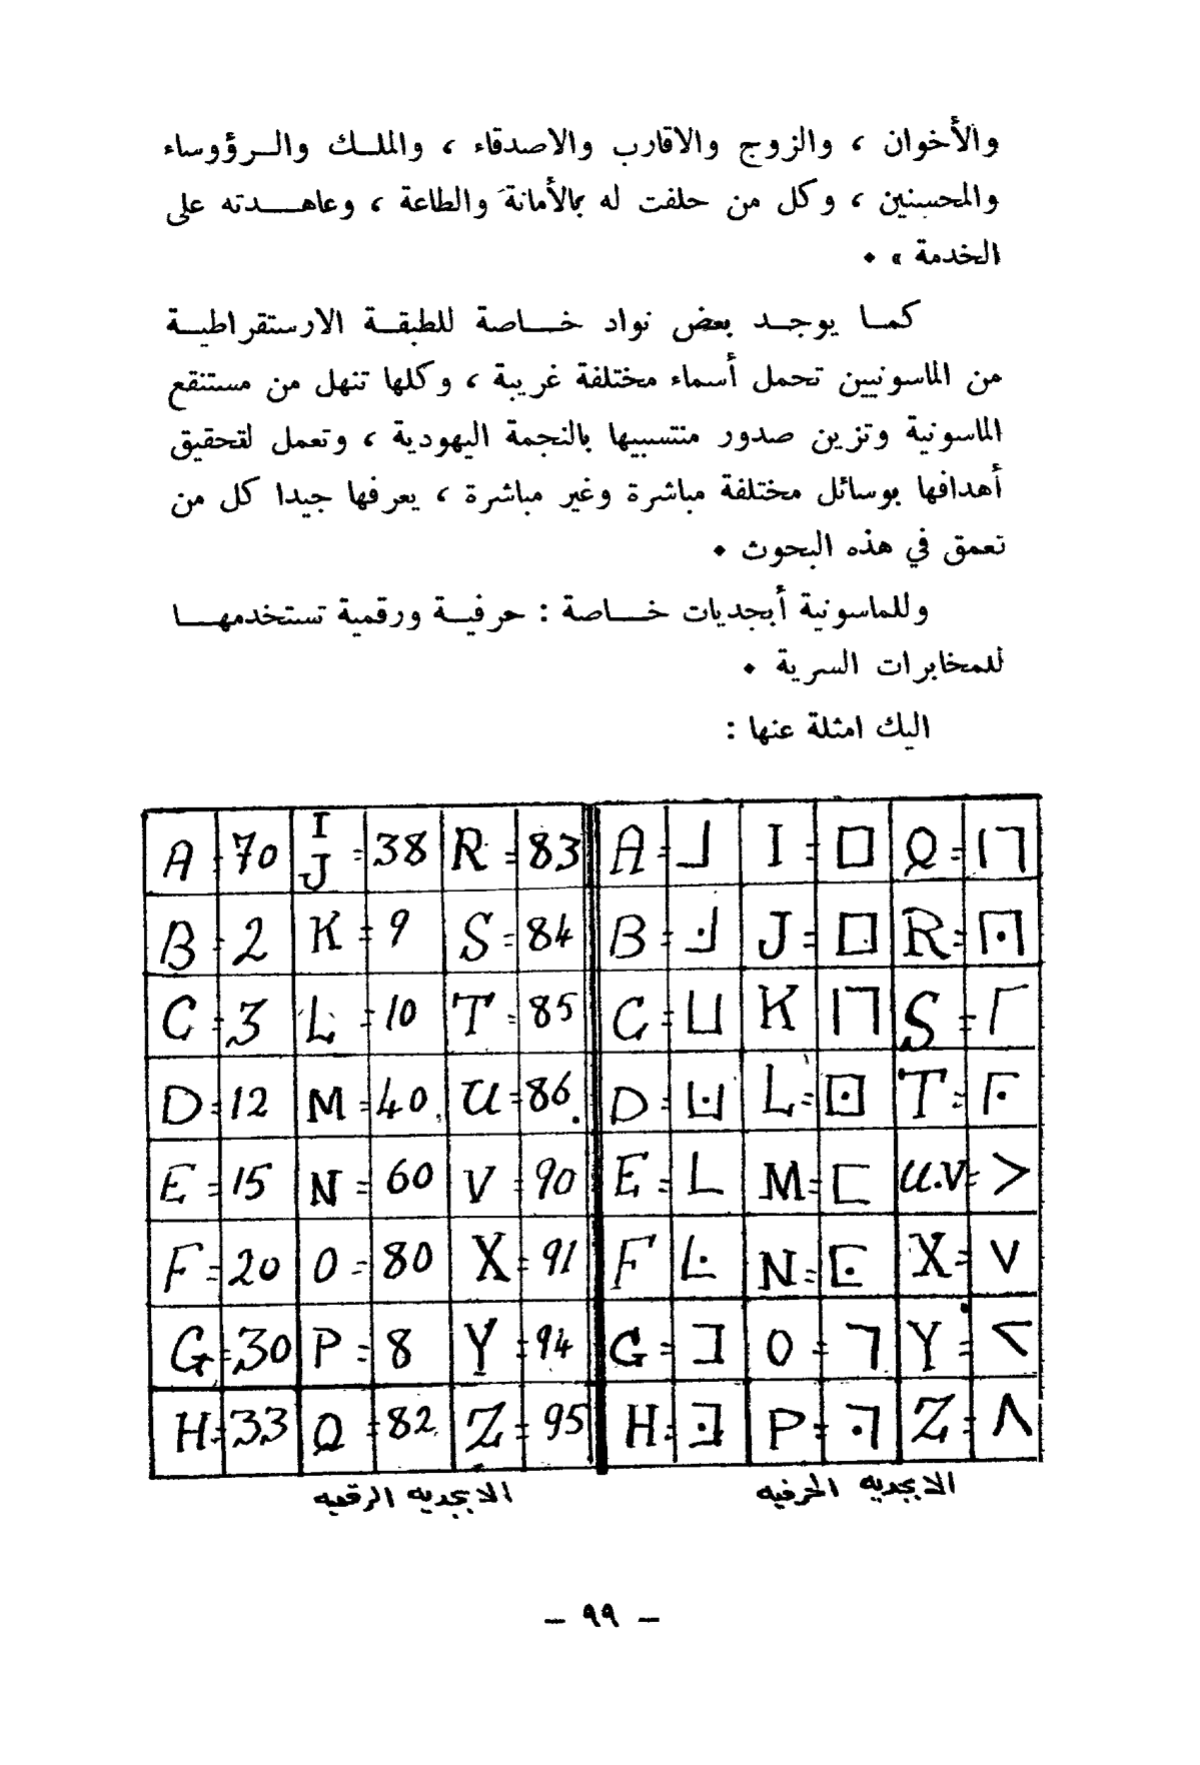 والأخوان ، والزوج والاقارب والاصدقاء ، والملك والرؤوساء
والمحسنين ، وكل من حلفت له بالأمانة والطاعة ، وعاهدته على
الخدمة » .
كما يوجد بعض نواد خاصة للطبقة الارستقراطية
من الماسونيين تحمل أسماء مختلفة غريبة ، وكلها تنهل من مستنقع
الماسونية وتزين صدور منتسبيها بالنجمة اليهودية ، وتعمل لتحقيق
أهدافها بوسائل مختلفة مباشرة وغير مباشرة ، يعرفها جيدا كل من
تعمق في هذه البحوث .
وللماسونية أبجديات خاصة : حرفية ورقمية تستخدمها
للمخابرات السرية .
اليك امثلة عنها :
A = 70 I J = 38 R = 83 A = I = Q =
B = 2 K = 9 S = 84 B = J = R =
C = 3 L = 10 T = 85 C = K S =
D = 12 M = 40 U = 86 D = L = T =
E = 15 N = 60 V = 90 E = M = U.V =
F = 20 O = 80 X = 91 F N = X =
G = 30 P = 8 Y = 94 G = O = Y =
H = 33 Q = 82 Z = 95 H = P = Z =
الابجديه الحرفيه
الابجديه الرقميه
– ٩٩ –